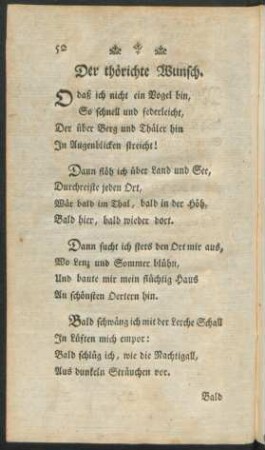 50
Der thörichte Wunsch.
O daß ich nicht ein Vogel bin,
So schnell und federleicht,
Der über Berg und Thäler hin
In Augenblicken streicht!
Dann flöh ich über Land und See,
Durchreiste jeden Ort,
Wär bald im Thal, bald in der Höh,
Bald hier, bald wieder dort.
Dann sucht ich stets den Ort mir aus,
Wo Lenz und Sommer blühn,
Und baute mir mein flüchtig Haus
An schönsten Oertern hin.
Bald schwäng ich mit der Lerche Schall
In Lüften mich empor:
Bald schlüg ich, wie die Nachtigall,
Aus dunkeln Sträuchen vor.
Bald